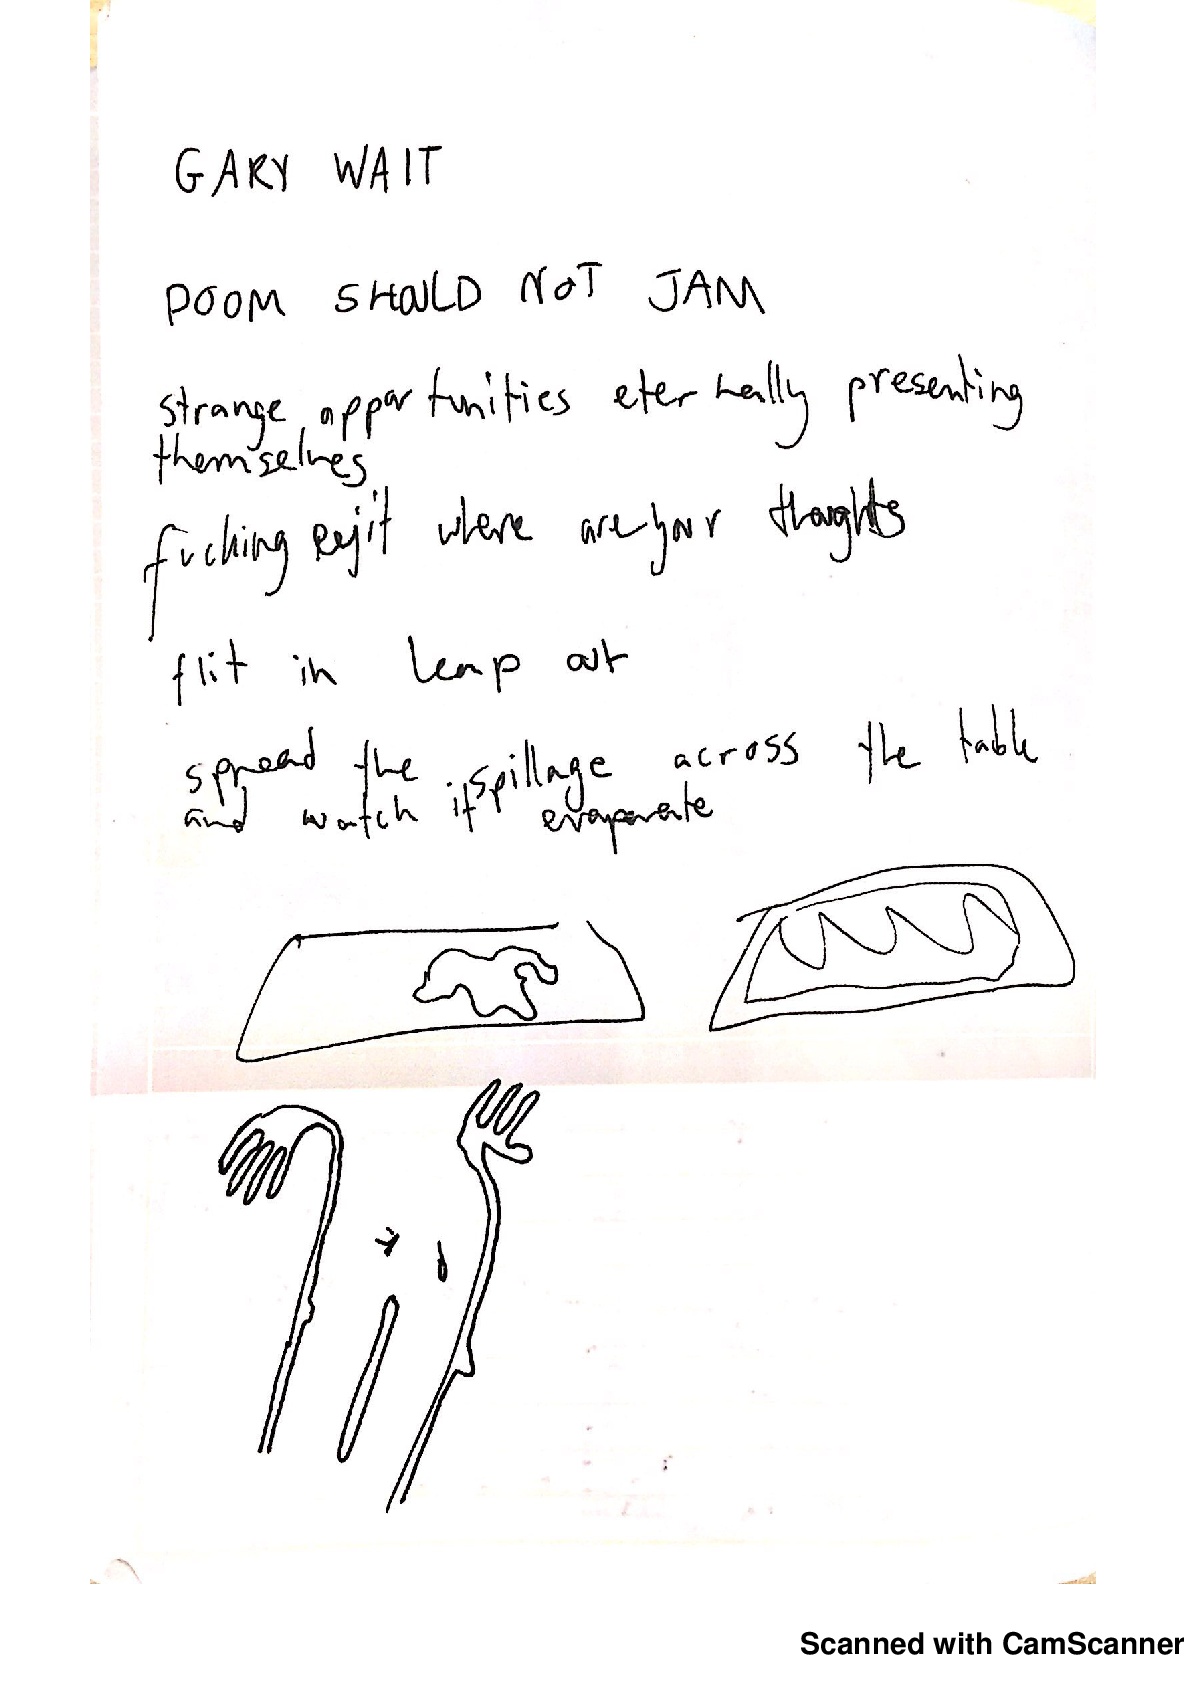 GARY WAIT
DOOM SHOULD NOT JAM
strange opportunities eternally presenting
themselves
fucking eejit where are your thoughts
flit in leap out
spread the spillage across the table
and watch it evaporate
Scanned with CamScanner